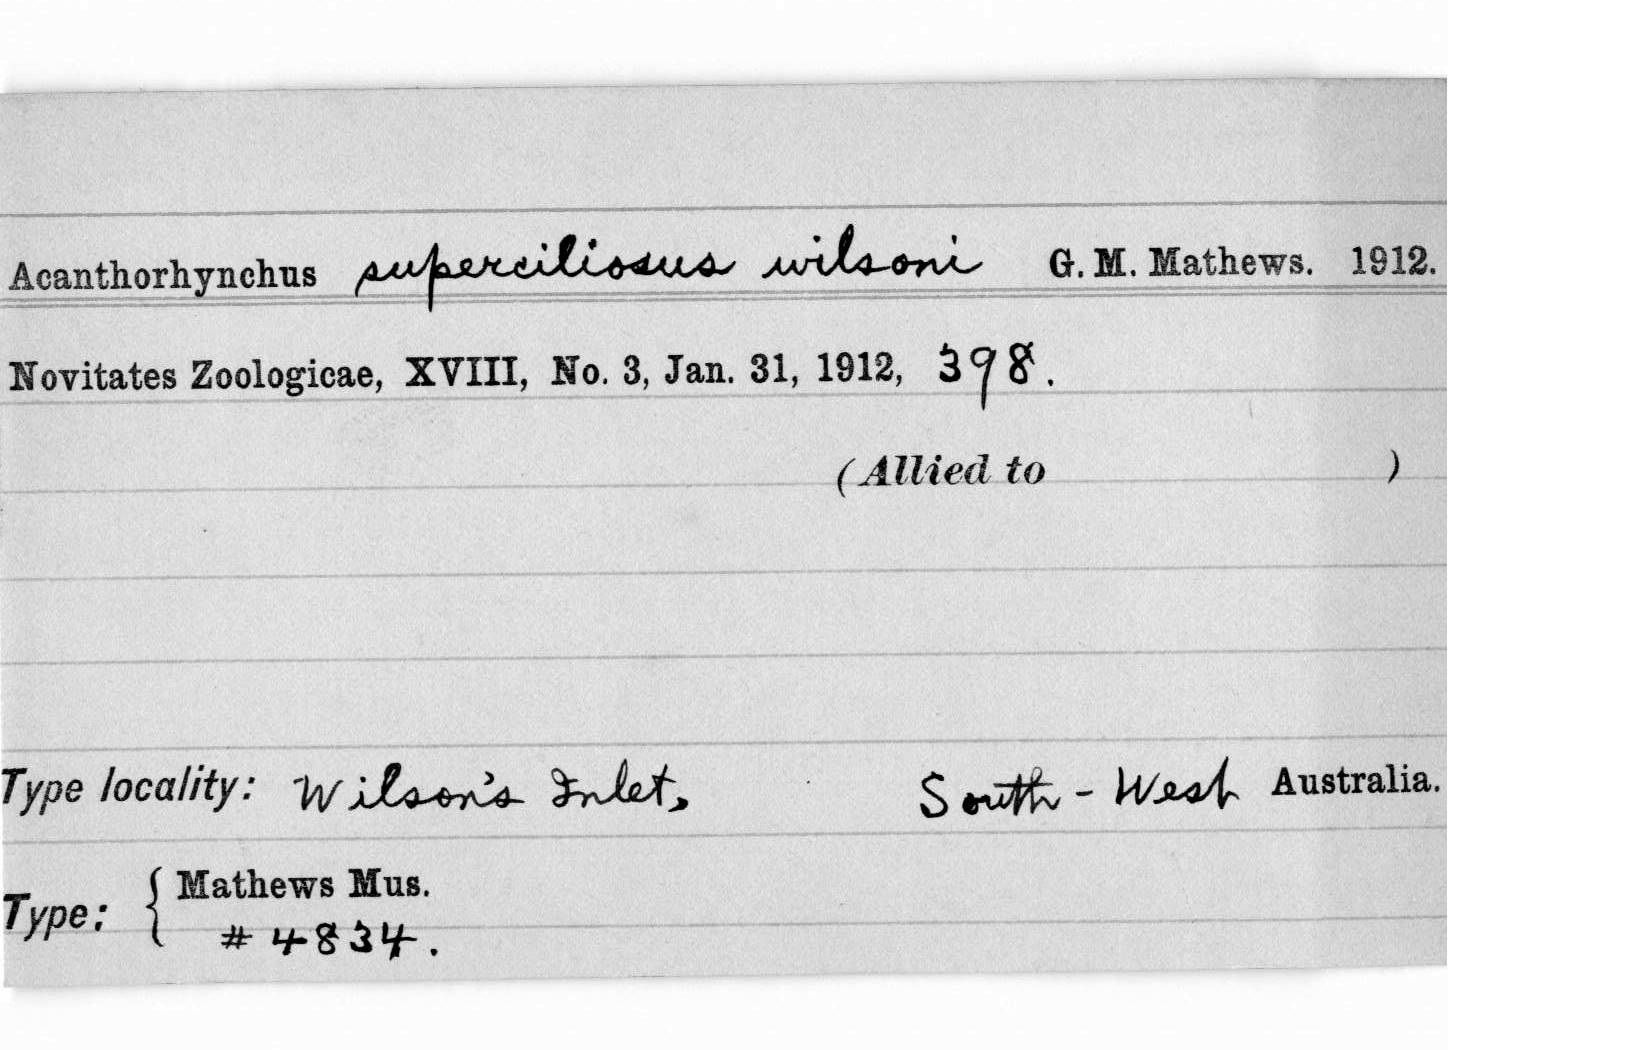 Acanthorhynchus superciliosus wilsoni G. M. Mathews. 1912.
Novitates Zoologicae, XVIII, No. 3, Jan. 31, 1912, 398.
(Allied to )
Type locality: Wilson's Inlet, South-West Australia.
Type: { Mathews Mus.
# 4834.